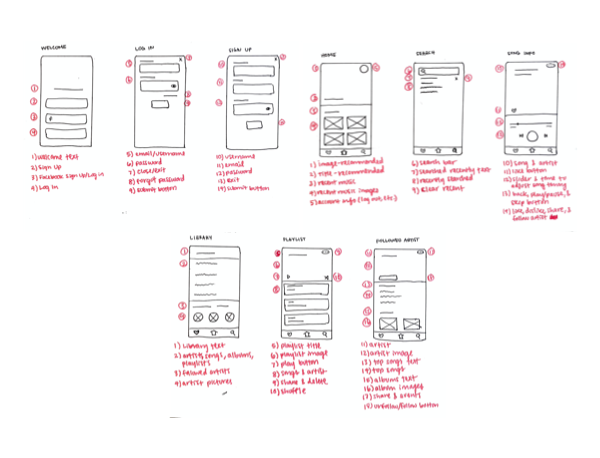 WELCOME
LOG IN
SIGN UP
HOME
SEARCH
SONG INFO
1) welcome text
2) sign up
3) Facebook sign up/Log in
4) Log in
5) email/username
6) password
7) close/exit
8) forgot password
9) submit button
10) username
11) email
12) password
13) exit
14) submit button
1) image-recommended
2) title - recommended
3) recent music
4) recent music images
5) account info (log out, etc.)
6) search bar
7) searched recently text
8) recently searched
9) clear recent
10) song & artist
11) like button
12) slider & time to
adjust song timing
13) back, play/pause, &
skip button
14) like, dislike, share, &
follow artist
LIBRARY
PLAYLIST
FOLLOWED ARTIST
1) Library text
2) artists, songs, albums,
playlists
3) followed artists
4) artist pictures
5) playlist title
6) playlist image
7) play button
8) songs & artist
9) share & delete
10) shuffle
11) artist
12) artist image
13) top songs text
14) top songs
15) albums text
16) album images
17) share & artists
18) unfollow/follow button